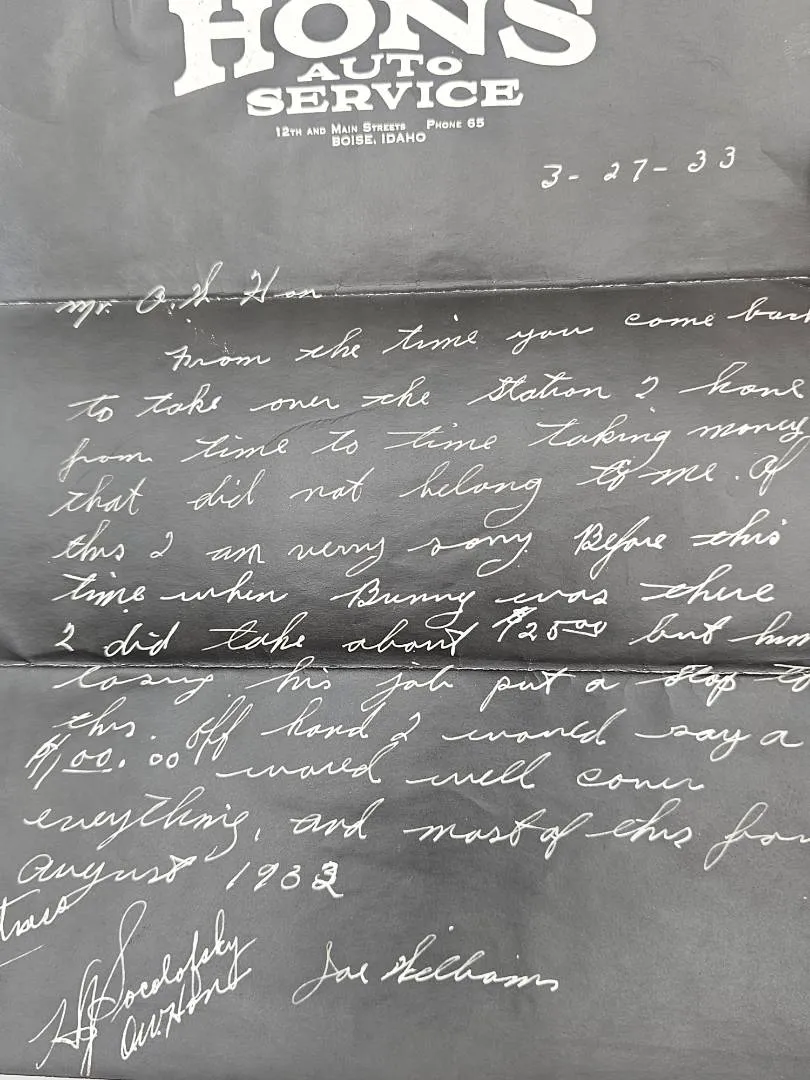 HONS
AUTO
SERVICE
12TH AND MAIN STREETS PHONE 65
BOISE, IDAHO
3-27-33
Mr. O. W. Hon
From the time you come back
to take over the Station I have
from time to time taking money
that did not belong to me. Of
this I am verry sorry. Before this
time when Bunny was there
I did take about $25.00 but him
losing his job put a stop to
this. Off hand I would say a
$100.00 would well cover
everything, and most of this from
August 1932
H J Socolofsky
O.W. Hons
Joe Williams